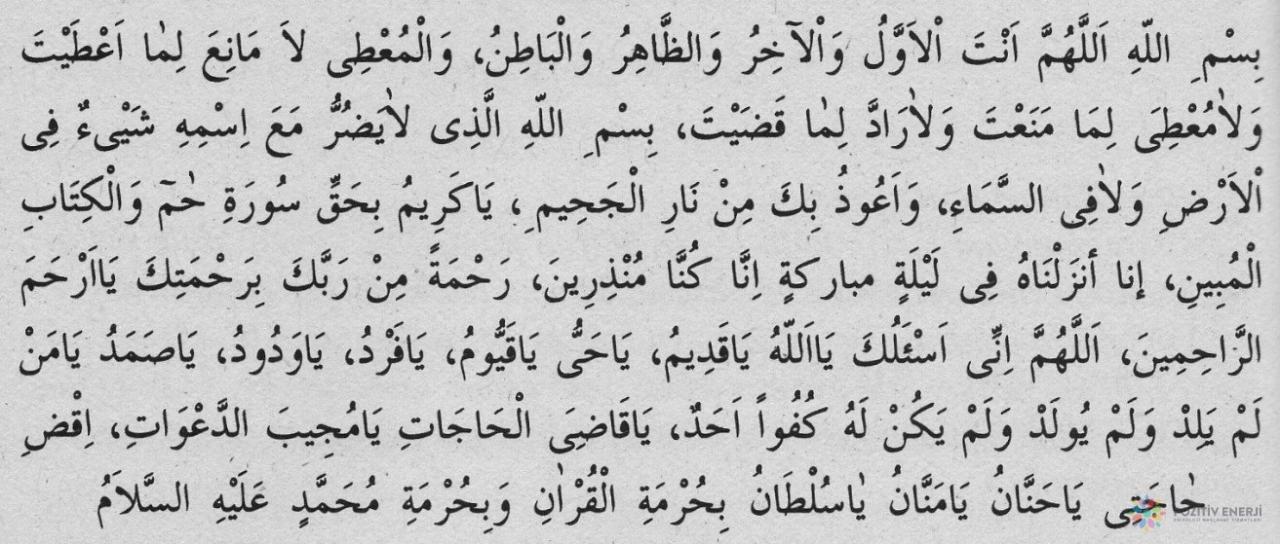 بِسْمِ اللّٰهِ اَللَّهُمَّ اَنْتَ اْلاَوَّلُ وَاْلآخِرُ وَالظَّاهِرُ وَالْبَاطِنُ، وَالْمُعْطِى لاَ مَانِعَ لِمٰا اَعْطَيْتَ
وَلاٰمُعْطِىَ لِمَا مَنَعْتَ وَلاٰرَادَّ لِمٰا قَضَيْتَ، بِسْمِ اللّٰهِ الَّذِى لاٰيَضُرُّ مَعَ اِسْمِهِ شَيْىءٌ فِى
اْلاَرْضِ وَلاٰفِى السَّمَاءِ، وَاَعُوذُ بِكَ مِنْ نَارِ الْجَحِيمِ، يَاكَرِيمُ بِحَقِّ سُورَةِ حٰمٓ وَالْكِتَابِ
الْمُبِينِ، إنا أنزَلْنَاهُ فِى لَيْلَةٍ مباركةٍ اِنَّا كُنَّا مُنْذِرِينَ، رَحْمَةً مِنْ رَبَّكَ بِرَحْمَتِكَ يَااَرْحَمَ
الرَّاحِمِينَ، اَللَّهُمَّ اِنِّى اَسْئَلُكَ يَااَللّٰهُ يَاقَدِيمُ، يَاحَىُّ يَاقَيُّومُ، يَافَرْدُ، يَاوَدُودُ، يَاصَمَدُ يَامَنْ
لَمْ يَلِدْ وَلَمْ يُولَدْ وَلَمْ يَكُنْ لَهُ كُفُواً اَحَدٌ، يَاقَاضِىَ الْحَاجَاتِ يَامُجِيبَ الدَّعْوَاتِ، اِقْضِ
حٰاجَتِى يَاحَنَّانُ يَامَنَّانُ يٰاسُلْطَانُ بِحُرْمَةِ الْقُرْاٰنِ وَبِحُرْمَةِ مُحَمَّدٍ عَلَيْهِ السَّلاَمُ
POZİTİV ENERJİ